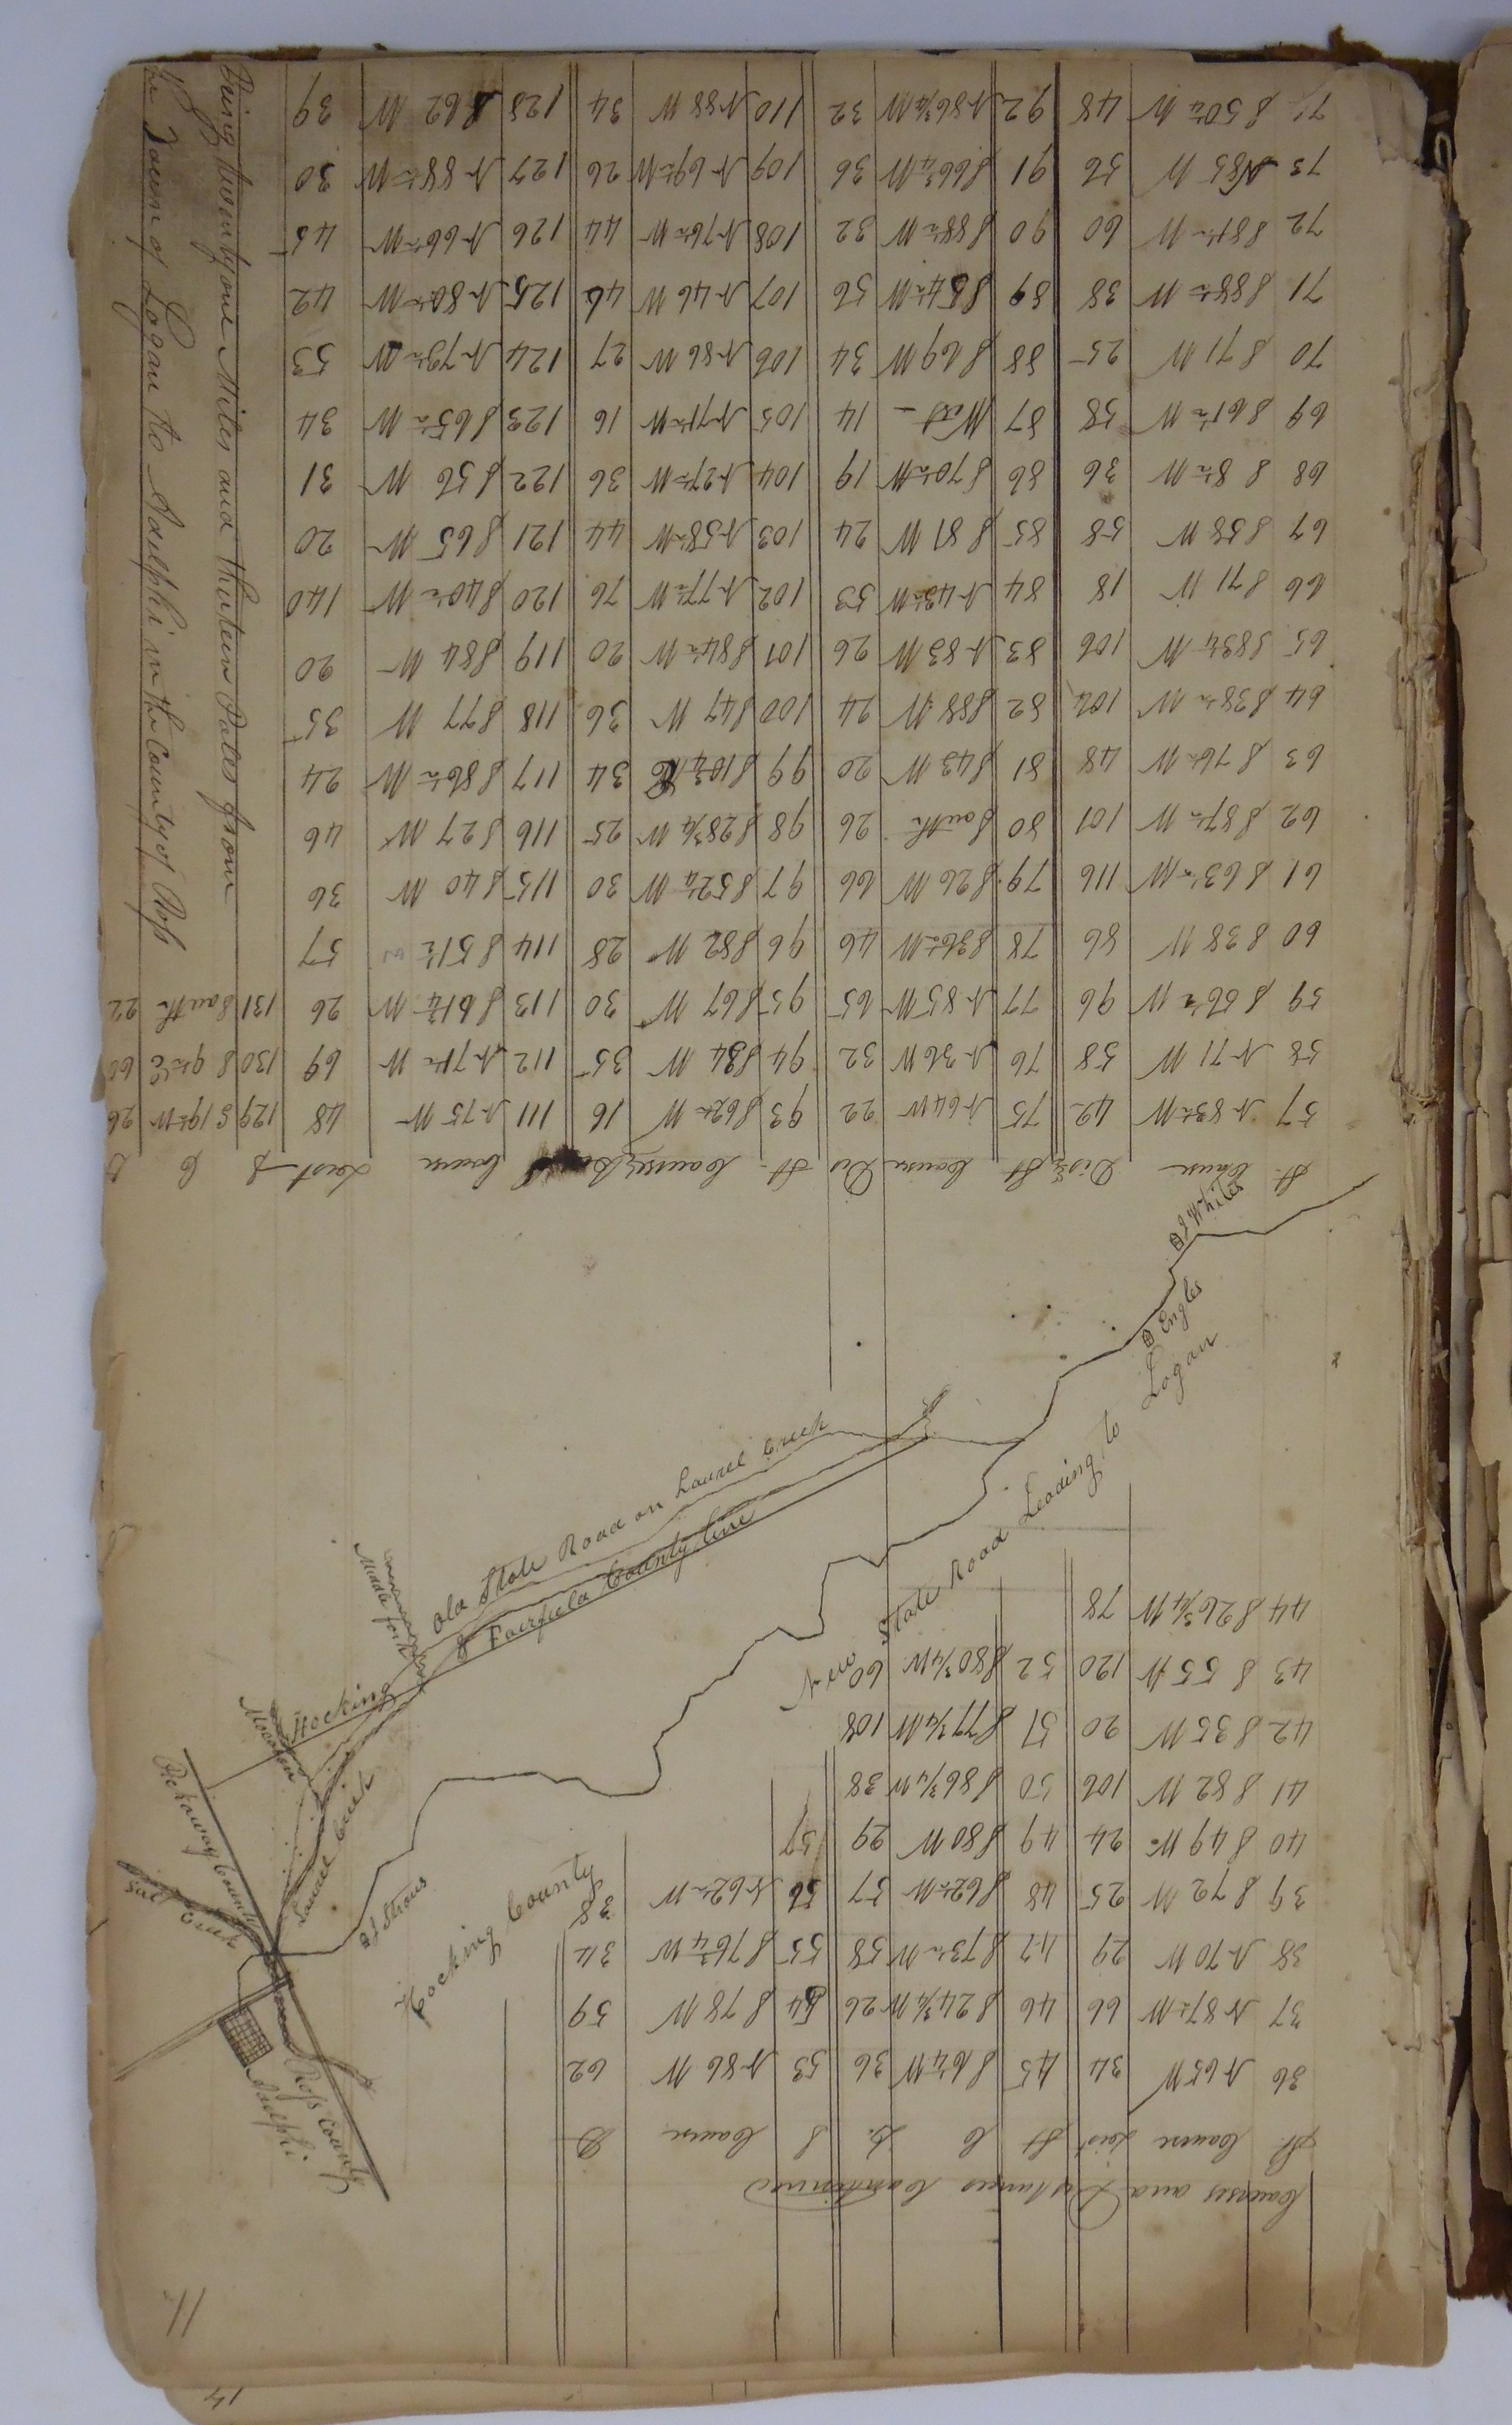 11
Courses and Distances Continued
St. Course Dist St C D. S Course D
36 N 65 W 34 45 S 64 1/2 W 36 53 N 86 W 62
37 N 87 1/2 W 66 46 S 24 3/4 W 26 54 S 78 W 59
38 N 70 W 29 47 S 73 1/2 W 58 55 S 76 3/4 W 34
39 S 72 W 25 48 S 62 1/2 W 57 56 N 62 1/2 W 38
40 S 49 W 24 49 S 80 W 29 57
41 S 82 W 106 50 S 86 3/4 W 38
42 S 35 W 20 51 S 77 1/4 W 108
43 S 55 W 120 52 S 80 3/4 W 60
44 S 26 3/4 W 78
Adelphi
Ross County
Hocking County
J Strous
Salt Creek
Pickaway County
Laurel Creek
Hocking
& Fairfield County line
Middle fork
Old State Road on Laurel Creek
New State Road Leading to Logan
Engles
J Whites
St. Course Dis St Course Dis St. Course Course Dist S C D
57 N 83 1/2 W 42 75 N 64 W 22 93 S 62 1/2 W 16 111 N 75 W 48 129 S 19 1/2 W 26
58 N 71 W 58 76 N 36 W 32 94 S 34 W 35 112 N 71 1/2 W 69 130 S 9 1/2 E 60
59 S 56 1/2 W 96 77 N 85 W 65 95 S 67 W 30 113 S 61 3/4 W 26 131 South 22
60 S 38 W 86 78 S 36 1/2 W 46 96 S 82 W 28 114 S 51 1/2 W 57
61 S 63 1/2 W 116 79 S 26 W 66 97 S 52 1/4 W 30 115 S 40 W 36
62 S 87 1/2 W 101 80 South 26 98 S 28 3/4 W 25 116 S 27 W 46
63 S 76 1/2 W 48 81 S 43 W 20 99 S 10 3/4 E 34 117 S 86 1/2 W 24
64 S 38 1/2 W 104 82 S 88 W 24 100 S 47 W 36 118 S 77 W 35
65 S 83 1/2 W 106 83 N 83 W 26 101 S 84 1/2 W 20 119 S 84 W 20
66 S 71 W 18 84 N 43 1/2 W 53 102 N 77 1/2 W 76 120 S 40 1/2 W 140
67 S 58 W 58 85 S 87 W 24 103 N 58 1/2 W 44 121 S 65 W 20
68 S 8 1/2 W 36 86 S 70 1/2 W 19 104 N 27 1/2 W 36 122 S 56 W 31
69 S 61 1/2 W 58 87 West 14 105 N 71 1/2 W 16 123 S 65 1/2 W 34
70 S 71 W 25 88 S 69 W 34 106 N 86 W 27 124 N 79 1/2 W 53
71 S 88 1/2 W 38 89 S 54 1/2 W 56 107 N 46 W 46 125 N 80 1/2 W 42
72 S 81 1/2 W 60 90 S 88 1/2 W 32 108 N 76 1/2 W 44 126 N 66 1/2 W 45
73 N 85 W 56 91 S 66 3/4 W 36 109 N 69 1/2 W 26 127 N 88 1/2 W 30
S 50 1/2 W 48 92 N 86 3/4 W 32 110 N 88 W 34 128 S 62 W 39
Being twenty one Miles and thirteen Poles from
the Town of Logan to Adelphi in the County of Ross
14